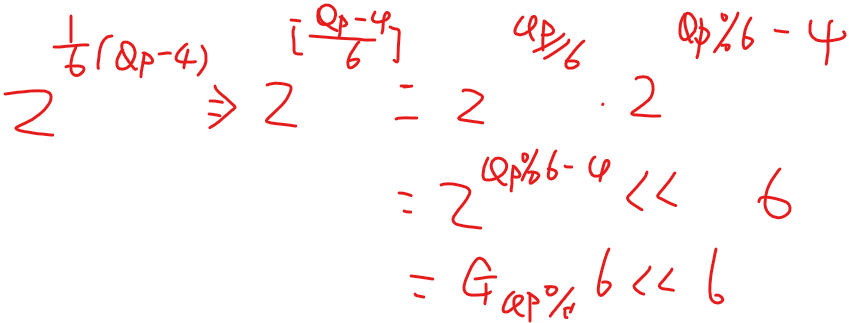 2^{\frac{1}{6}(Qp-4)} ⇛ 2^{[\frac{Qp-4}{6}]} = 2^{Qp//6} · 2^{Qp%6-4}
= 2^{Qp%6-4} << 6
= G_{Qp%} 6 << 6